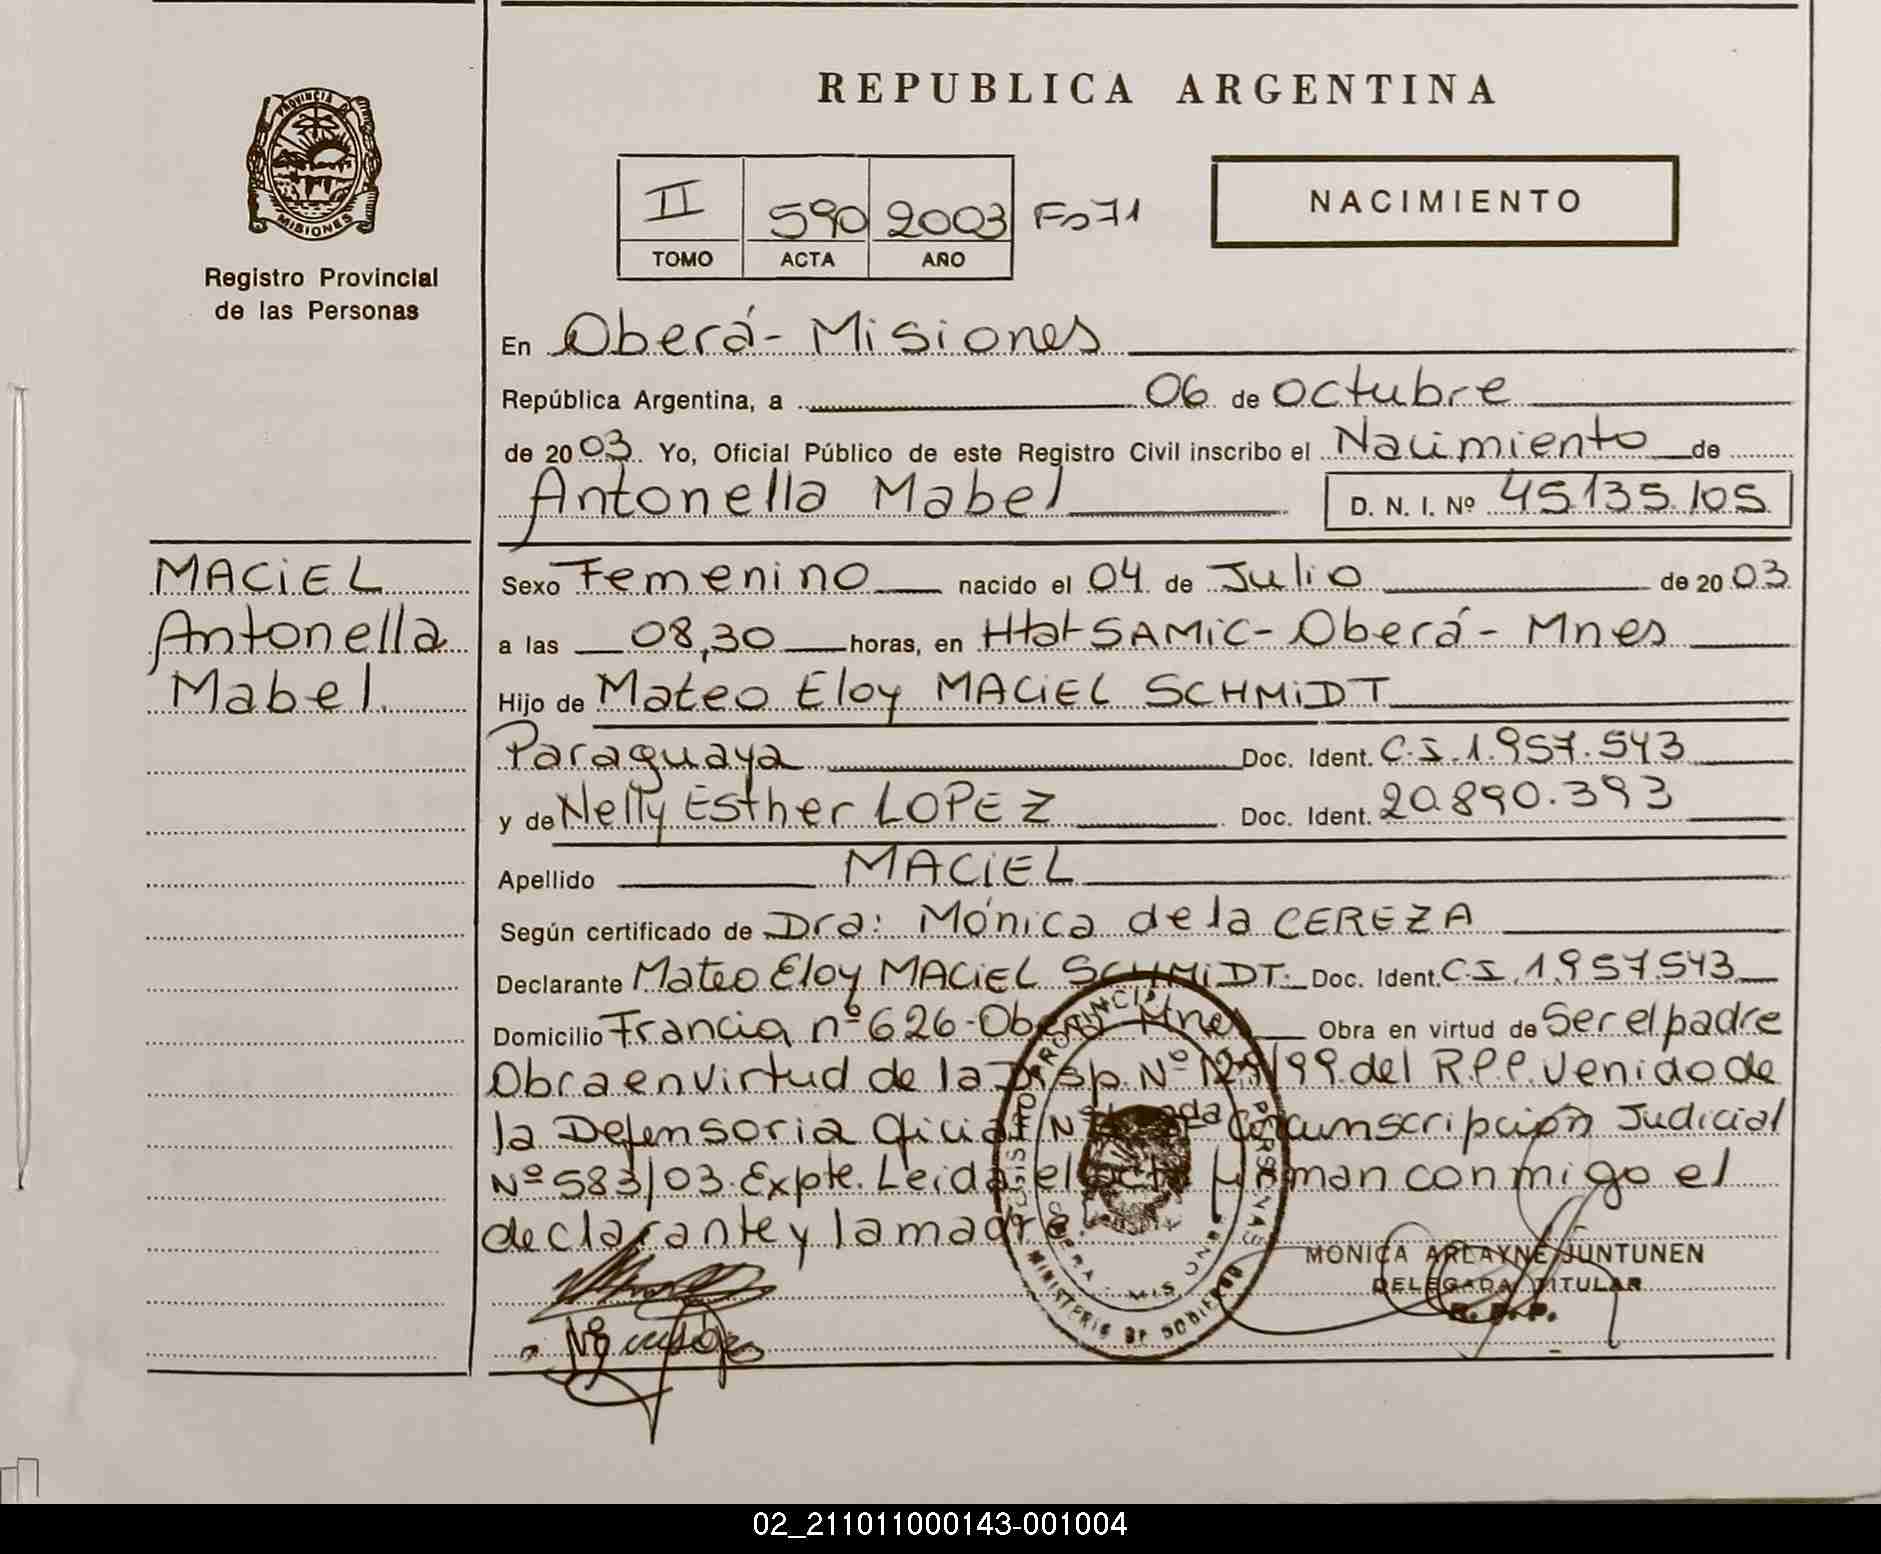 PROVINCIA DE
MISIONES
Registro Provincial
de las Personas
REPUBLICA ARGENTINA
II 590 2003 Fo 71
TOMO ACTA AÑO
NACIMIENTO
En Oberá - Misiones
República Argentina, a 06 de octubre
de 2003 Yo, Oficial Público de este Registro Civil inscribo el Nacimiento de
Antonella Mabel D. N. I. Nº 45.135.105
MACIEL
Antonella
Mabel
Sexo Femenino nacido el 04 de Julio de 2003
a las 08,30 horas, en Htal SAMIC - Oberá - Mnes
Hijo de Mateo Eloy MACIEL SCHMIDT
Paraguaya Doc. Ident. C.I. 1.957.543
y de Nelly Esther LOPEZ Doc. Ident. 20.890.393
Apellido MACIEL
Según certificado de Dra: Mónica de la CEREZA
Declarante Mateo Eloy MACIEL SCHMIDT. Doc. Ident. C.I. 1.957.543
Domicilio Francia nº 626 - Oberá Mnes Obra en virtud de Ser el padre
Obra en virtud de la Disp. Nº 129/99 del R.P.P. venido de
la Defensoria Oficial Nº da Circunscripción Judicial
Nº 583/03 Expte. Leida el acta firman conmigo el
declarante y la madre.
MONICA ARLAYNE JUNTUNEN
DELEGADA TITULAR
R.P.P.
MINISTERIO DE GOBIERNO
02_211011000143-001004